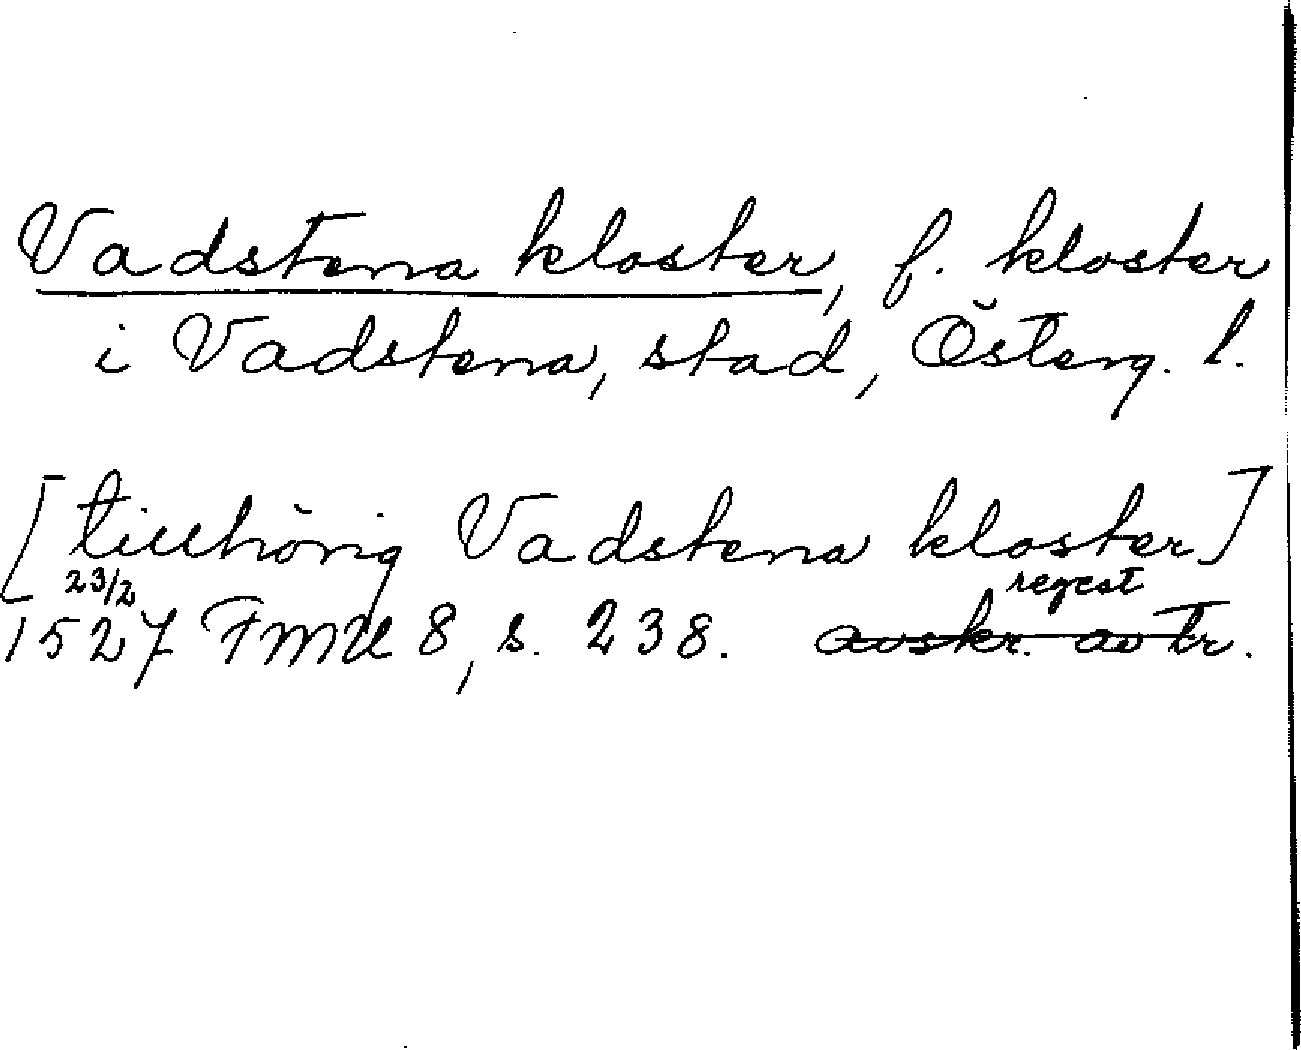 Vadstena kloster, f. kloster
i Vadstena, stad, Österg. l.
[tillhörig Vadstena kloster]
23/2 regest
1527 FMU 8, s. 238. avskr. av tr.